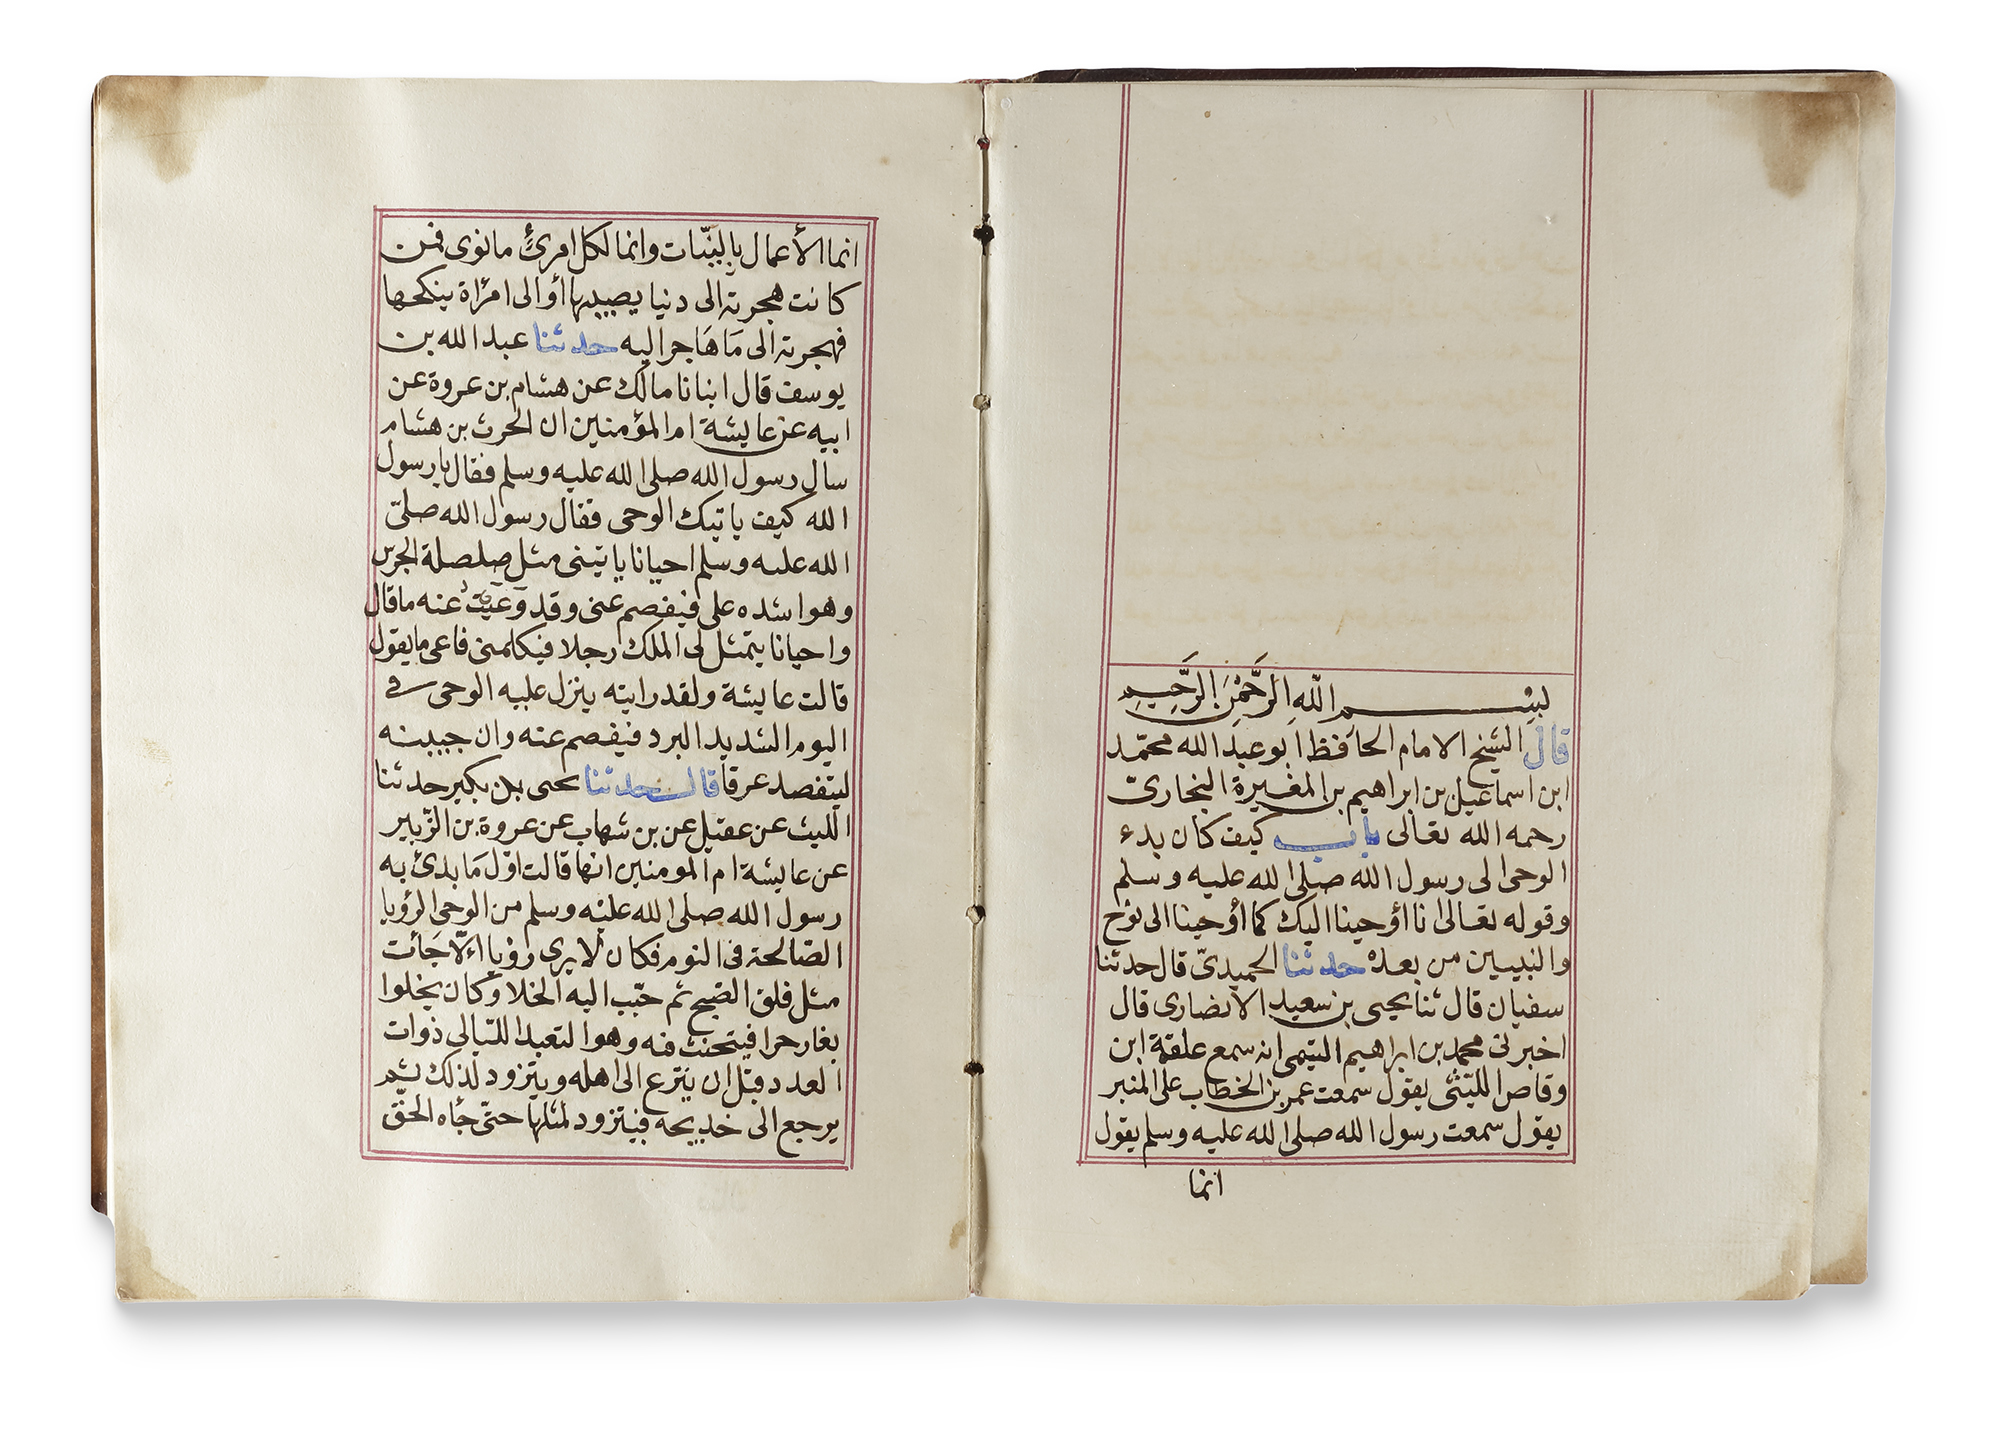 بِسْمِ اللّٰهِ الرَّحْمٰنِ الرَّحِيمِ
قال الشيخ الامام الحافظ ابو عبد الله محمّد
ابن اسماعيل بن ابراهيم بن المغيرة البخاريّ
رحمه الله تعالى باب كيف كان بدء
الوحى الى رسول الله صلى الله عليه وسلم
وقوله تعالى انا أوحينا اليك كما أوحينا الى نوح
والنبيين من بعده حدثنا الحميديّ قال حدثنا
سفيان قال ثنا يحيى بن سعيد الانصارى قال
اخبرنى محمد بن ابراهيم التيمى انه سمع علقمة ابن
وقاص الليثى يقول سمعت عمر بن الخطاب على المنبر
يقول سمعت رسول الله صلى الله عليه وسلم يقول
انما
انما الأعمال بالنيّات وانما لكل امرئ مانوى فمن
كانت هجرته الى دنيا يصيبها أو الى امرأة ينكحها
فهجرته الى مَا هَاجر اليه حدثنا عبد الله بن
يوسف قال انبانا مالك عن هشام بن عروة عن
ابيه عن عايشة ام المؤمنين ان الحرث بن هشام
سال رسول الله صلى الله عليه وسلم فقال يا رسول
الله كيف ياتيك الوحى فقال رسول الله صلىّ
الله عليه وسلم احيانا ياتينى مثل صلصلة الجرس
وهو اشده على فيفصم عنى وقد وَعَيْتُ عنه ما قال
واحيانا يتمثل لى الملك رجلا فيكلمنى فاعى ما يقول
قالت عايشة ولقد رايته ينزل عليه الوحى فى
اليوم الشديد البرد فيفصم عنه وان جبينه
ليتفصد عرقا قال حدثنا يحيى بن بكير حدثنا
الليث عن عقيل عن بن شهاب عن عروة بن الزّبير
عن عايشة ام المومنين انها قالت اوّل مَا بدئ به
رسول الله صلى الله عليْه وسلم من الوحى الرؤيا
الصّالحة فى النوم فكان لا يرى رؤيا الّا جَائت
مثل فلق الصّبح ثم حبّب اليه الخلا وكان يخلوا
بغار حرا فيتحنث فيه وهو التعبد الليّالى ذوات
العدد قبل ان ينزع الى اهله ويتزود لذلك ثم
يرجع الى خديجه فيتزود لمثلها حتىّ جأه الحقّ